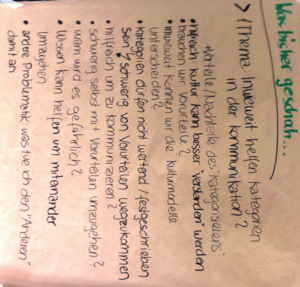 Was bisher geschah...
> Thema Inwieweit helfen Kategorien
in der Kommunikation?
• Vorteile/Nachteile des Kategorisierens
• hilfreich kultur kann besser verstanden werden
• brauchen wir Vorurteile?
• inwieweit können wir die Kulturmodelle
unterscheiden?
• Kategorien dürfen nicht wertend / festgeschrieben
sein
schwierig von Vorurteilen wegzukommen
• hilfreich um zu kommunizieren?
• schwierig selbst mit Vorurteilen umzugehen?
• wann wird es gefährlich?
• Wissen kann helfen um miteinander
umzugehen
• andere Problematik was tue ich den "Anderen"
damit an